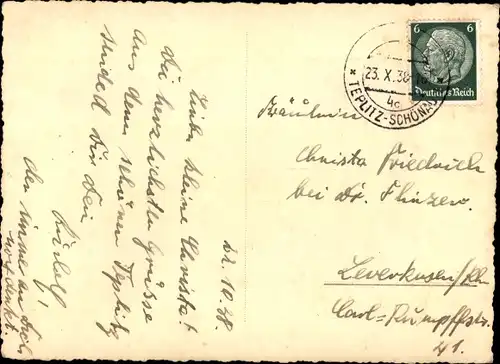 6 6
Deutsches Reich
23. X. 38
4c
* TEPLITZ-SCHÖNAU
22.10.38
Liebe kleine Christa!
Die herzlichsten Grüsse
aus dem schönen Teplitz
sendet Dir Dein
Rudolf,
der immer an Dich
Fräulein
Christa Friedrich
bei Dr. Flinzer
Leverkusen/Rh.
Carl-Rumpffstr.
41.